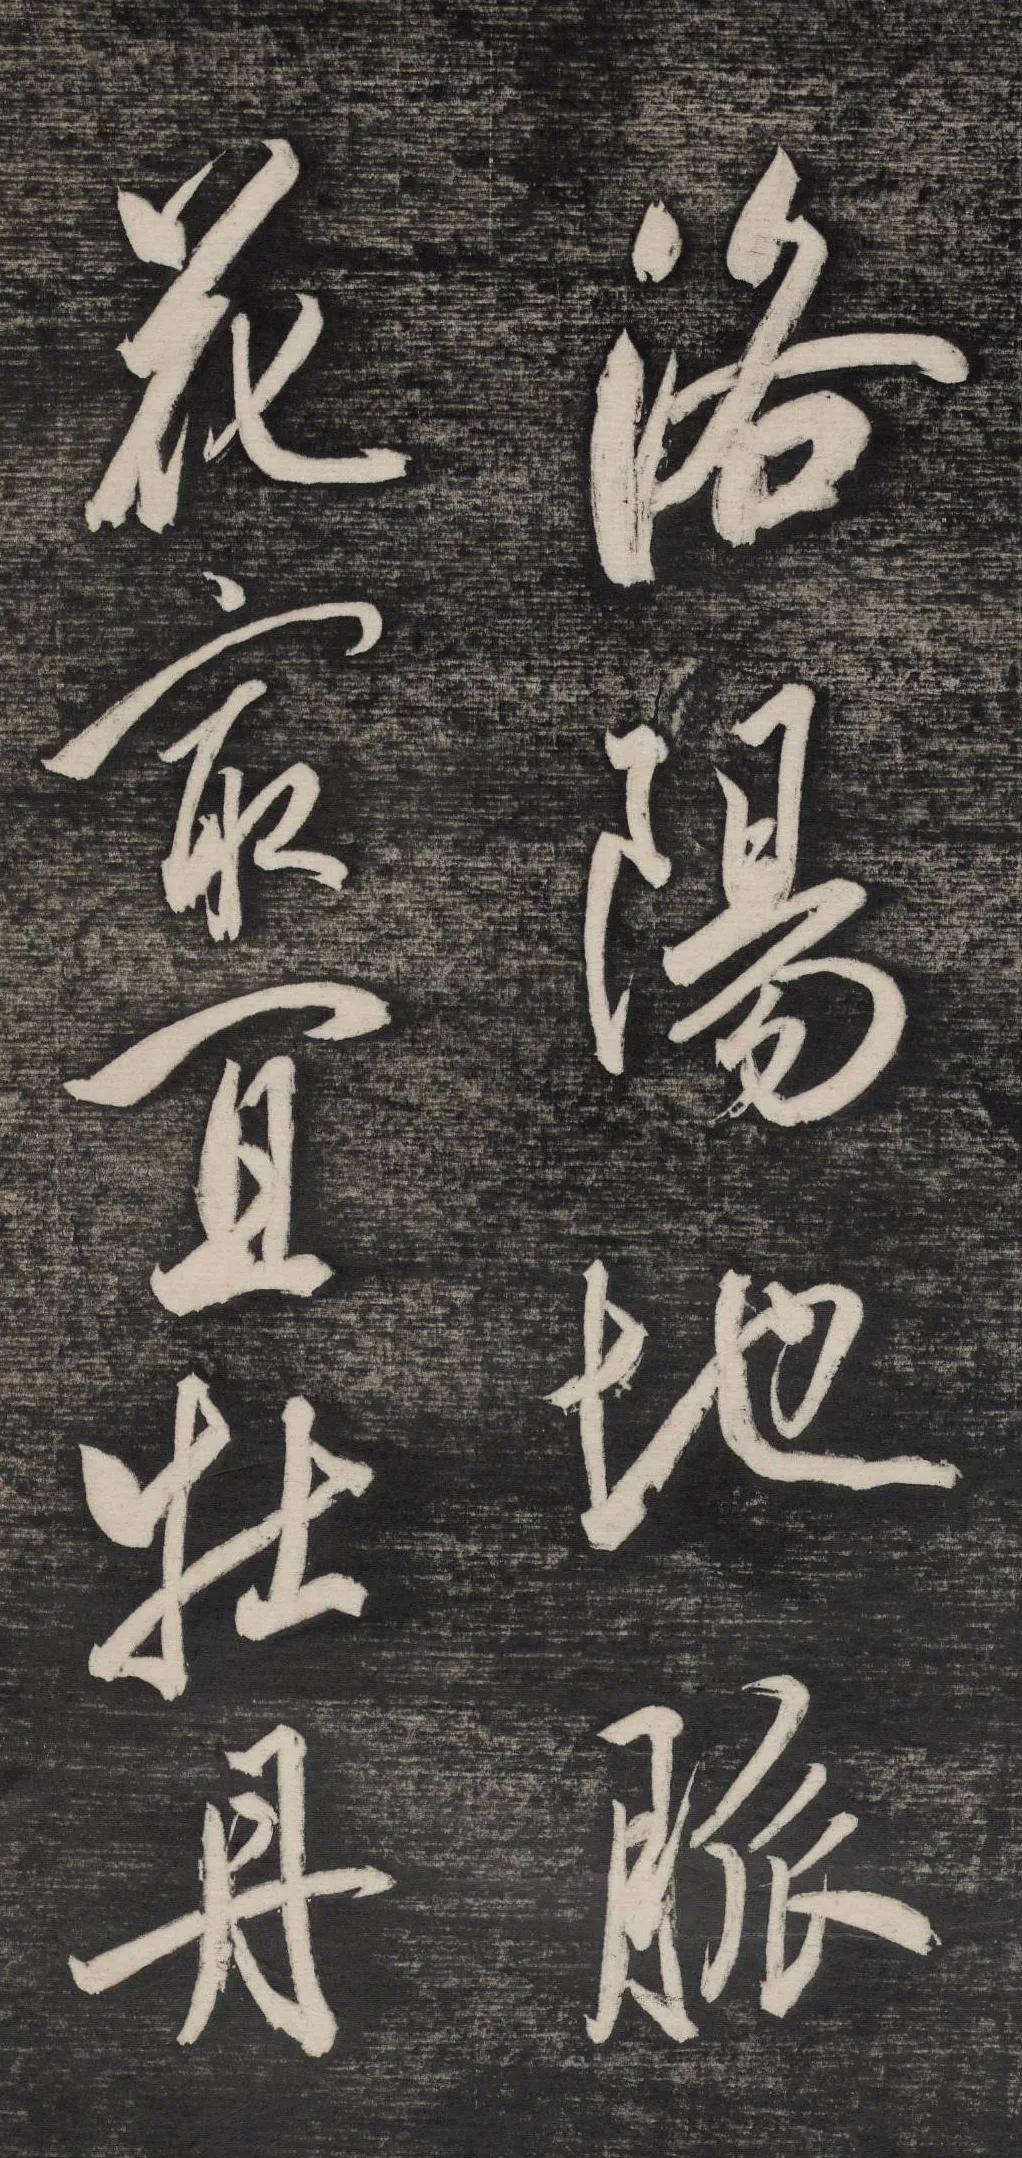 洛陽地脈
花㝡宜牡丹